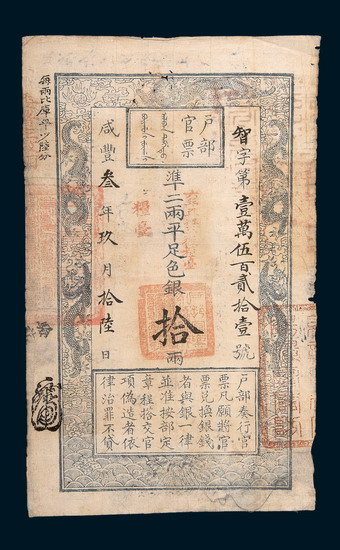 戶部
官票
智字第壹萬伍百貳拾壹號
準二兩平足色銀拾兩
咸豐叁年玖月拾陸日
戶部奏行官
票凡願將官
票兌換銀錢
者與銀一律
並准按部定
章程搭交官
項偽造者依
律治罪不貸
每兩比庫平少陸分